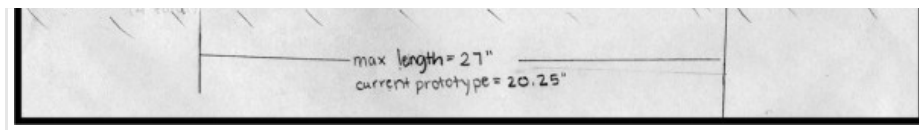 max length = 27"
current prototype = 20.25"